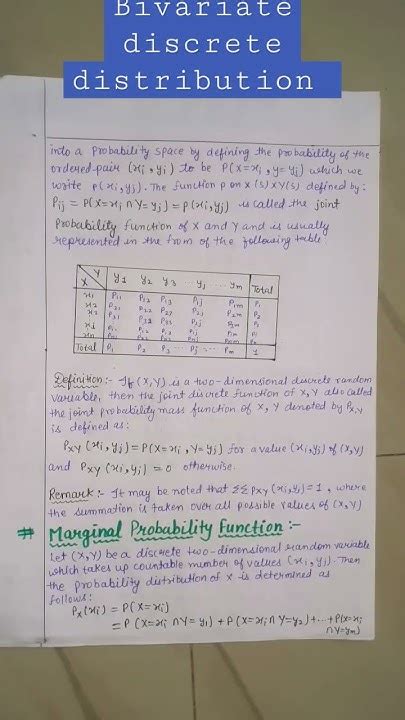 Bivariate
discrete
distribution
into a probability space by defining the probability of the
ordered pair (xi, yj) to be P(X=xi, Y=yj) which we
write p(xi, yj). The function p on X(S)×Y(S) defined by:
Pij = P(X=xi ∩ Y=yj) = p(xi, yj) is called the joint
Probability function of X and Y and is usually
represented in the from of the following table
X Y y1 y2 y3 ... yj ... ym Total
x1 P11 P12 P13 P1j P1m P1
x2 P21 P22 P23 P2j P2m P2
Total P1 P2 P3 ... Pj ... Pm 1
Definition:- If (X,Y) is a two-dimensional discrete random
variable, then the joint discrete function of X,Y also called
the joint probability mass function of X, Y denoted by PX,Y
is defined as:
PXY (xi, yj) = P(X=xi, Y=yj) for a value (xi, yj) of (X,Y)
and PXY (xi, yj) = 0 otherwise.
Remark:- It may be noted that ΣΣ PXY (xi, yj) = 1, where
the summation is taken over all possible values of (X,Y)
# Marginal Probability Function :-
Let (X,Y) be a discrete two-dimensional random variable
which takes up countable number of values (xi, yj). Then
the probability distribution of X is determined as
follows:
PX(xi) = P(X=xi)
= P(X=xi ∩ Y=y1) + P(X=xi ∩ Y=y2) + ... + P(X=xi
∩ Y=ym)